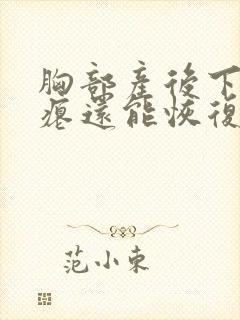 胸部產後下
瘪還能恢復
范小東